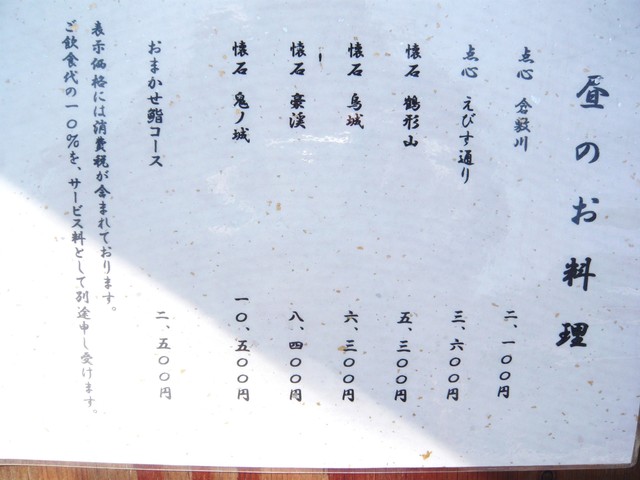 昼のお料理
点心 倉敷川 二、一〇〇円
点心 えびす通り 三、六〇〇円
懐石 鶴形山 五、三〇〇円
懐石 烏城 六、三〇〇円
懐石 豪渓 八、四〇〇円
懐石 鬼ノ城 一〇、五〇〇円
おまかせ鮨コース 二、五〇〇円
表示価格には消費税が含まれております。
ご飲食代の一〇%を、サービス料として別途申し受けます。